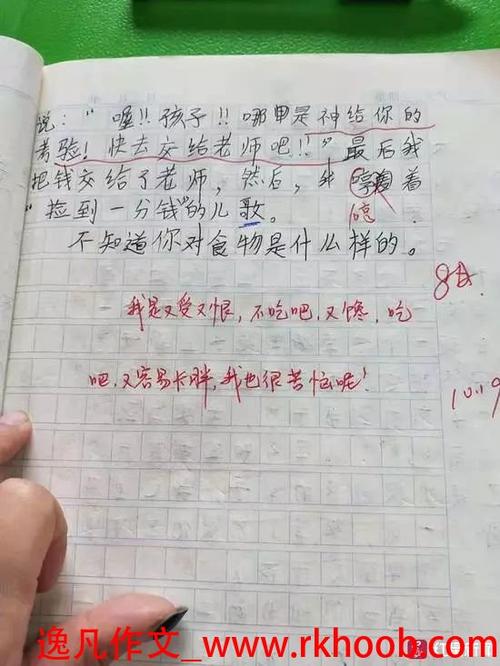 说："喔!!孩子!!哪里是神给你的
考验!快去交给老师吧!!"最后我
把钱交给了老师,然后,我 着
"捡到一分钱"的儿歌。
不知道你对食物是什么样的。
我是又爱又恨,不吃吧,又馋,吃
吧,又容易长胖,我也很苦恼呢!
10.19
逸凡作文_www.rkhoob.com